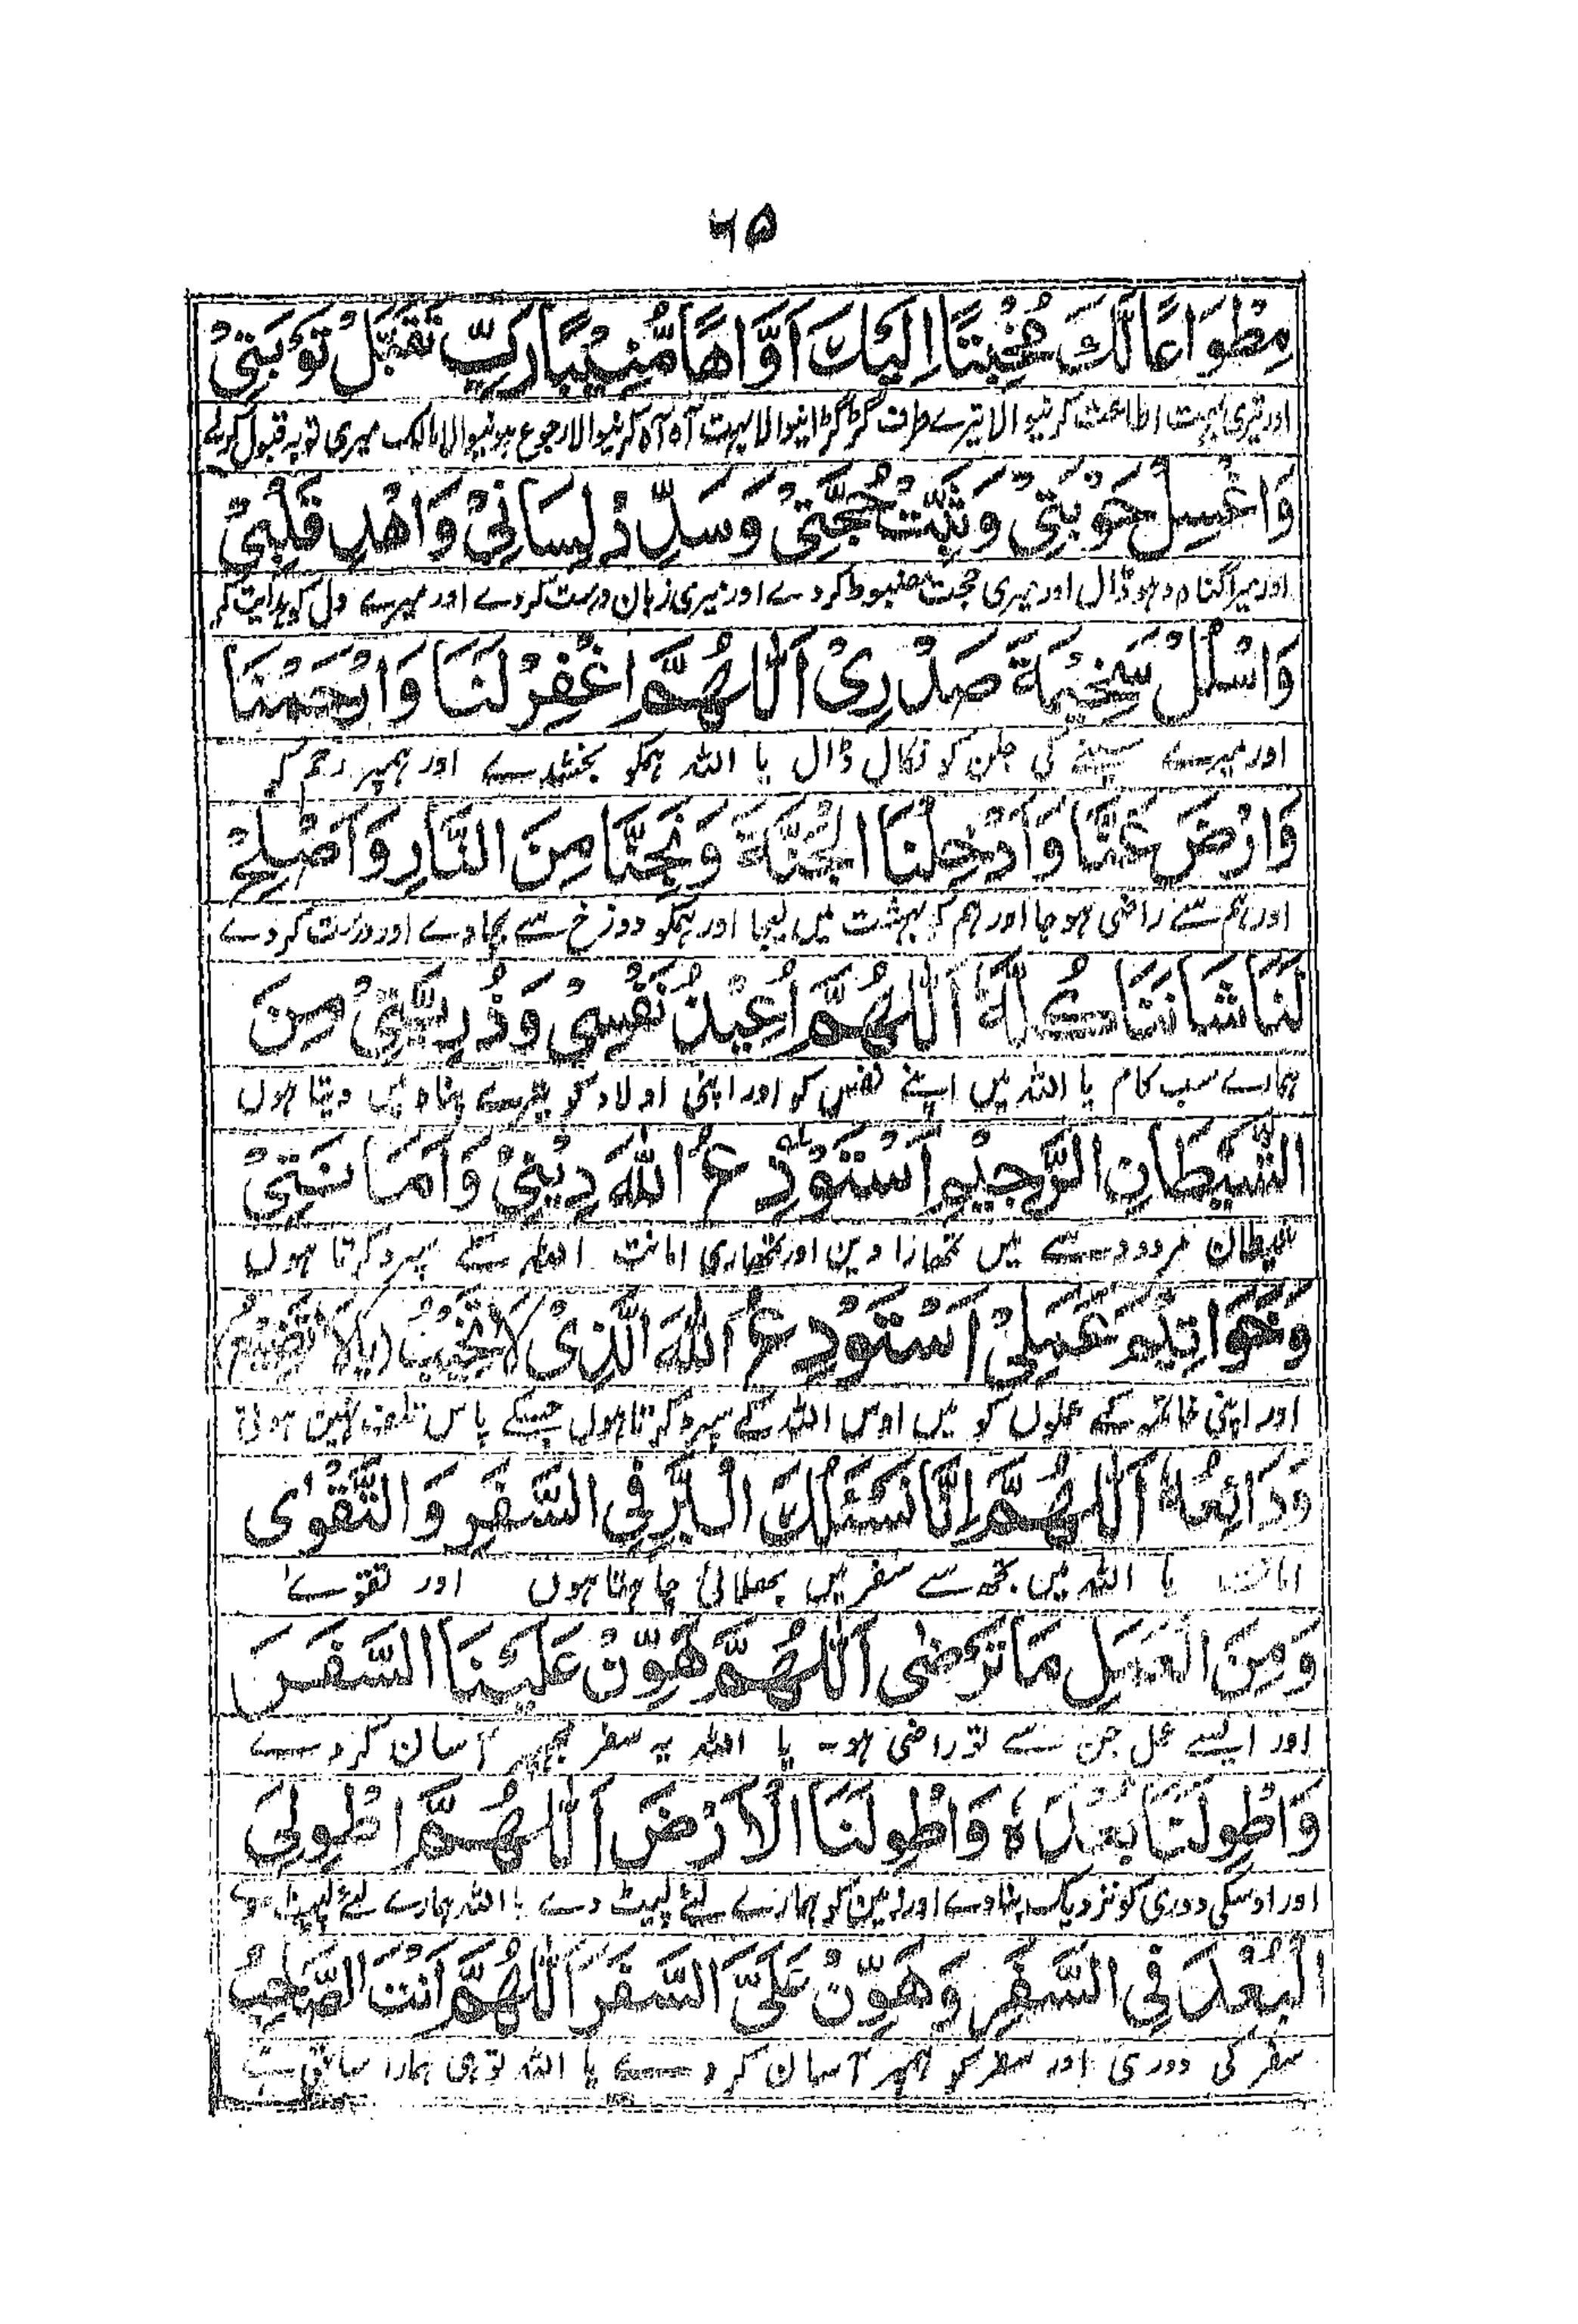 ۶۵
مِطْوَاعًا لَّكَ مُخْبِتًا اِلَيْكَ اَوَّاهًا مُّنِيْبًا رَبِّ تَقَبَّلْ تَوْبَتِیْ
اور تیری بہت اطاعت کرنیوالا تیرے طرف گڑگڑانیوالا بہت آہ آہ کرنیوالا رجوع ہونیوالا یا مالک میری توبہ قبول کرلے
وَاغْسِلْ حَوْبَتِیْ وَثَبِّتْ حُجَّتِیْ وَسَدِّدْ لِسَانِیْ وَاهْدِ قَلْبِیْ
اور میرا گناہ دہو ڈال اور میری حجت مضبوط کردے اور میری زبان درست کردے اور میرے دل کو ہدایت کر
وَاسْلُلْ سَخِيْمَةَ صَدْرِیْ اَللّٰهُمَّ اغْفِرْ لَنَا وَارْحَمْنَا
اور میرے سینے کی جلن کو نکال ڈال یا اللہ ہمکو بخشدے اور ہمپر رحم کر
وَارْضَ عَنَّا وَاَدْخِلْنَا الْجَنَّةَ وَنَجِّنَا مِنَ النَّارِ وَاَصْلِحْ
اور ہم سے راضی ہو جا اور ہم کو بہشت میں لیجا اور ہمکو دوزخ سے بچادے اور درست کردے
لَنَا شَانَنَا كُلَّهٗ اَللّٰهُمَّ اُعِيْذُ نَفْسِیْ وَذُرِّيَّتِیْ مِنَ
ہمارے سب کام یا اللہ میں اپنے نفس کو اور اپنی اولاد کو تیرے پناہ میں دیتا ہوں
الشَّيْطَانِ الرَّجِيْمِ اَسْتَوْدِعُ اللّٰهَ دِيْنِیْ وَاَمَانَتِیْ
شیطان مردود سے میں تمھارا دین اور تمھاری امانت اللہ کے سپرد کرتا ہوں
وَخَوَاتِيْمَ عَمَلِیْ اَسْتَوْدِعُ اللّٰهَ الَّذِیْ لَا تَخِيْبُ (يَا لَا تَضِيْعُ)
اور اپنی خاتمہ کے عملوں کو میں اوس اللہ کے سپرد کرتا ہوں جسکے پاس تلف نہین ہوتی
وَدَائِعُهٗ اَللّٰهُمَّ اِنَّا نَسْئَلُكَ الْبِرَّ فِی السَّفَرِ وَالتَّقْوٰی
امانت یا اللہ میں تجھ سے سفر میں بھلائی چاہتا ہوں اور تقوے
وَمِنَ الْعَمَلِ مَا تَرْضٰی اَللّٰهُمَّ هَوِّنْ عَلَيْنَا السَّفَرَ
اور ایسے عمل جن سے تو راضی ہو۔ یا اللہ یہ سفر مجھپر آسان کردے
وَاطْوِ لَنَا بُعْدَهٗ وَاطْوِ لَنَا الْاَرْضَ اَللّٰهُمَّ اطْوِ لِیَ
اور اوسکی دوری کو نزدیک بنادے اور زمین کو ہمارے لئے لپیٹ دے یا اللہ ہمارے لئے
الْبُعْدَ فِی السَّفَرِ وَهَوِّنْ عَلَیَّ السَّفَرَ اَللّٰهُمَّ اَنْتَ الصَّاحِبُ
سفر کی دوری اور سفر کو مجھپر آسان کردے یا اللہ تو ہی ہمارا ساتھی ہے